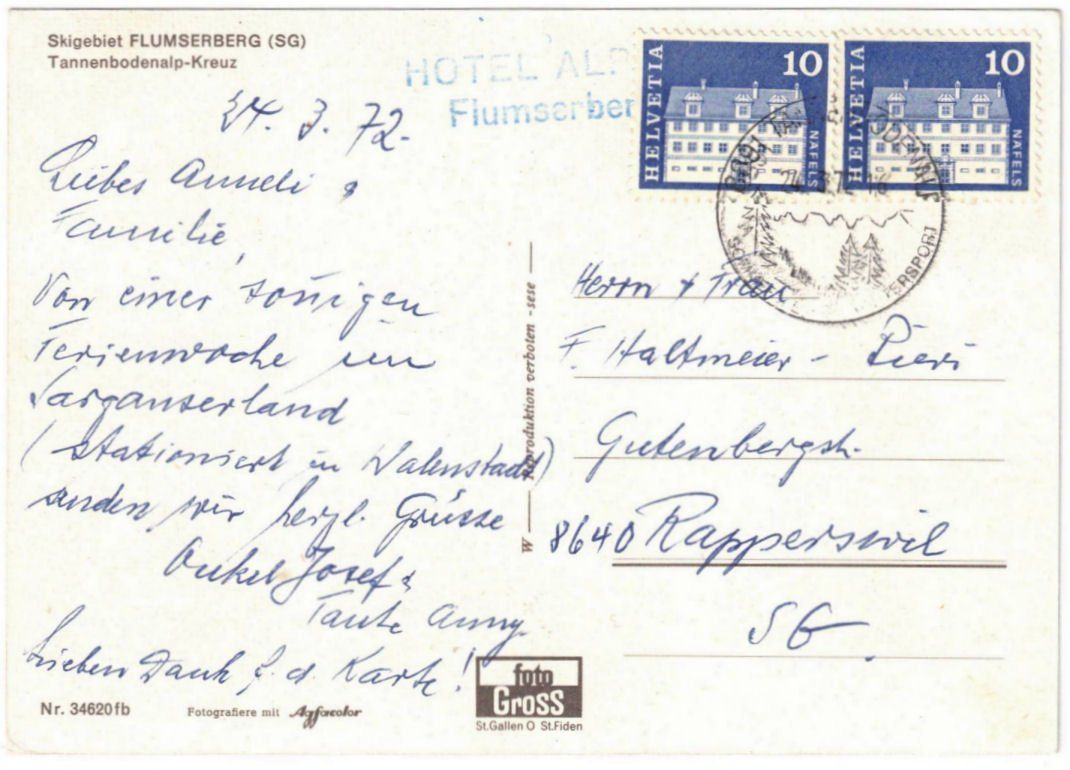 Skigebiet FLUMSERBERG (SG)
Tannenbodenalp-Kreuz
HOTEL ALP
Flumserber
HELVETIA 10 NÄFELS
HELVETIA 10 NÄFELS
24.3.72
24. 3. 72.
Liebes Anneli &
Familie,
Von einer sonigen
Ferienwoche im
Sarganserland
(stationiert in Walenstadt)
senden wir herzl. Grüsse
Onkel Josef &
Tante Anny.
Lieben Dank f. d. Karte!
W Reproduktion verboten - sese
Herrn & Frau
F. Haltmeier - Pieri
Gutenbergstr.
8640 Rapperswil
SG
Nr. 34620fb
Fotografiere mit Agfacolor
foto
GROSS
St.Gallen O St.Fiden